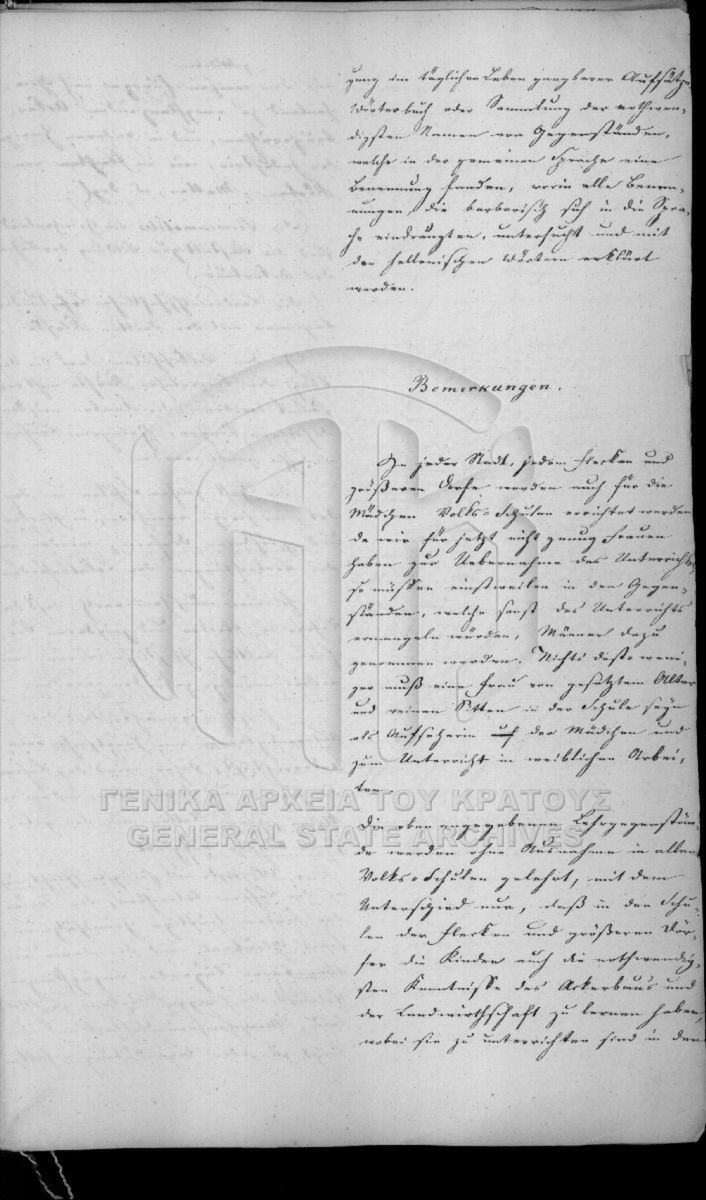 gung im täglichen Leben gangbarer Aufsätze
Wörterbuch oder Sammlung der nothwen-
digsten Namen von Gegenständen,
welche in der gemeinen Sprache eine
Benennung fanden, worin alle Benen-
nungen, die barbarisch sich in die Spra-
che eindrängten, untersucht und mit
den hellenischen Wörtern erklärt
werden.
Bemerkungen.
In jeder Stadt, jedem Flecken und
größeren Dorfe werden auch für die
Mädchen Volks-Schulen errichtet werden
da wir für jetzt nicht genug Frauen
haben zur Uebernahme des Unterrichts,
so müssen einstweilen in den Gegen-
ständen, welche sonst des Unterrichts
ermangeln würden, Männer dazu
genommen werden. Nichts desto weni-
ger muß eine Frau von gesetztem Alter
und reinen Sitten in der Schule seyn
als Aufseherin der Mädchen und
zum Unterricht in weiblichen Arbei-
ten.
Die oben angegebenen Lehrgegenstän-
de werden ohne Ausnahme in allen
Volks-Schulen gelehrt, mit dem
Unterschied nur, daß in den Schu-
len der Flecken und größeren Dör-
fer die Kinder auch die nothwendig-
sten Kenntnisse des Ackerbau's und
der Landwirthschaft zu lernen haben,
wobei sie zu unterrichten sind in den
ΓΕΝΙΚΑ ΑΡΧΕΙΑ ΤΟΥ ΚΡΑΤΟΥΣ
GENERAL STATE ARCHIVES